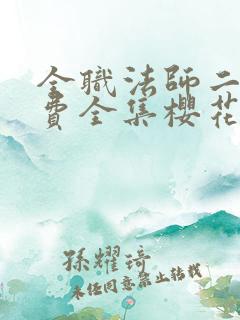 全職法師二
費全集櫻花
孫耀琦
未經同意禁止轉載